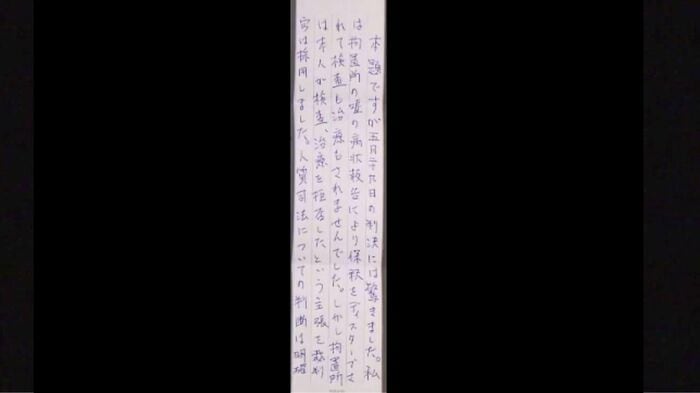 本題ですが五月二十九日の判決には驚きました。私
は拘置所の嘘の病状報告により保釈をディスターブさ
れて検査も治療もされませんでした。しかし拘置所
は本人が検査、治療を拒否したという主張を裁判
官は採用しました。人質司法についての判断は明確